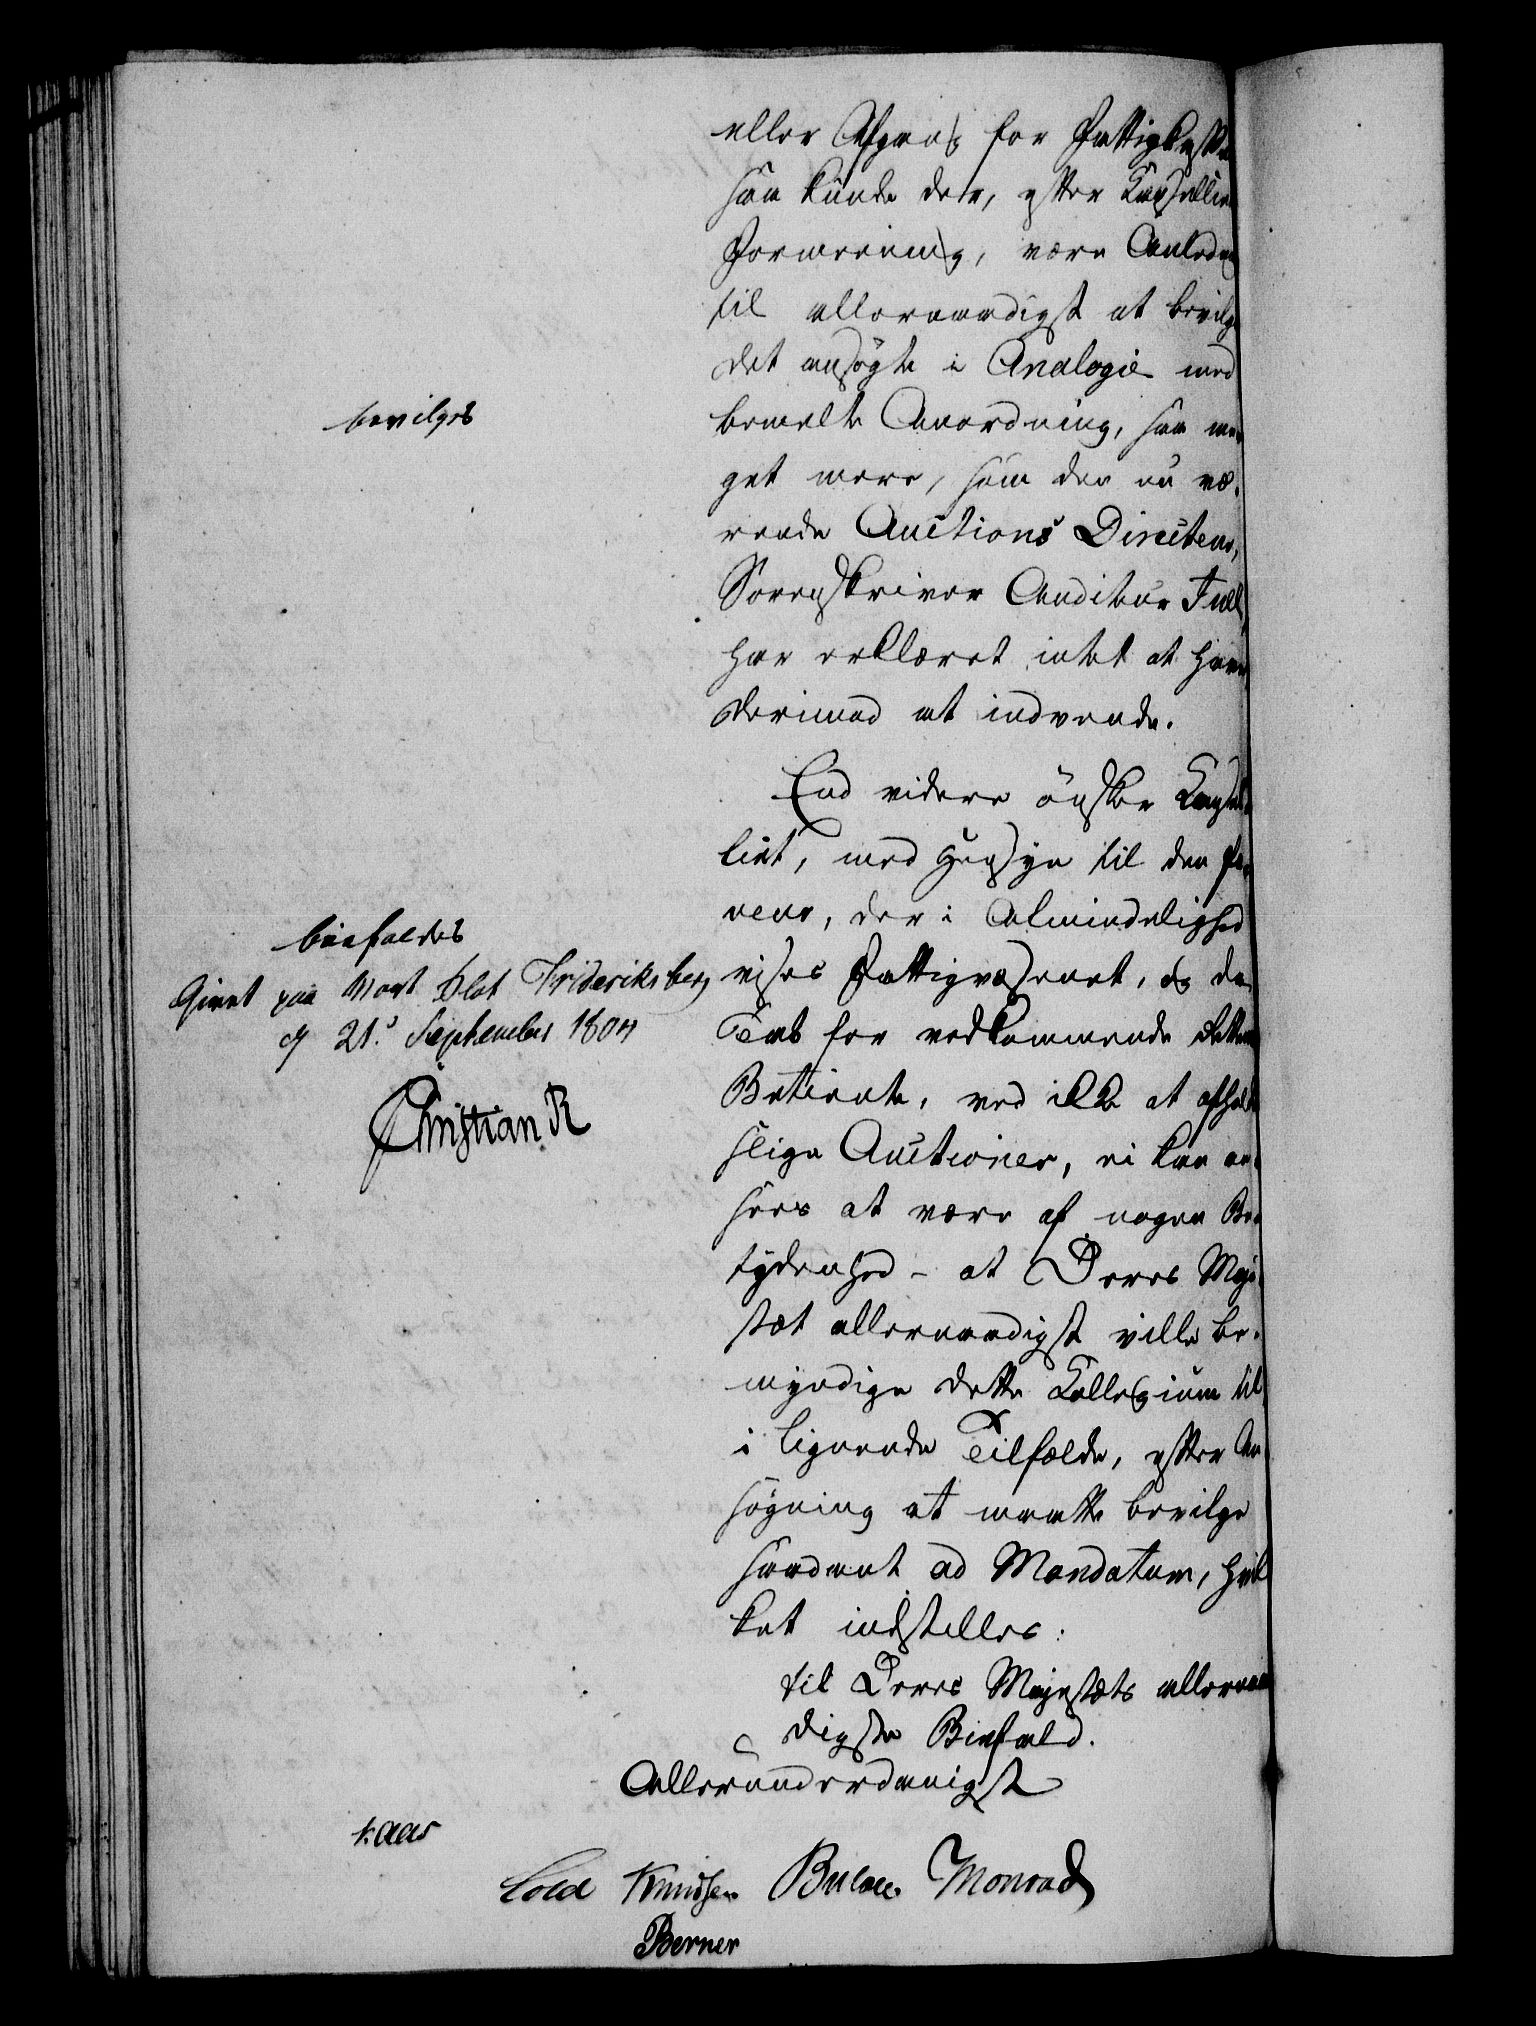 eller Afgang for Fattigkassen
saa kunde der, efter Cancelliets
Formeening, være Anledn
til allernaadigst at bevilge
det ansøgte i Analogie med
bemelte Anordning, saa me
get mere, som den nu væ-
rende Auctions Directeur,
Sorenskriver Auditeur Juell,
har erklæret intet at have
derimod at indvende.
End videre ønsker Cancel
liet, med Hensyn til den Fa
veur, der i Almindelighed
vises Fattigvæsenet, og da
Tab for vedkommende
Betiente, ved ikke at afholde
slige Auctioner, ei kan an
sees at være af nogen Be
tydenhed – at Deres Maje
stæt allernaadigst ville be-
myndige dette Collegium til
i lignende Tilfælde, efter An
søgning at maatte bevilge
saadant ad Mandatum, hvil
ket indstilles:
til Deres Majestæts allernaa
digste Biefald.
Allerunderdanigst
bevilges
biefaldes
Givet paa Vort Slot Frideriksberg
d 21. September 1804
Christian R
Kaas
Cold Knudsen Bülow Monrad
Berner